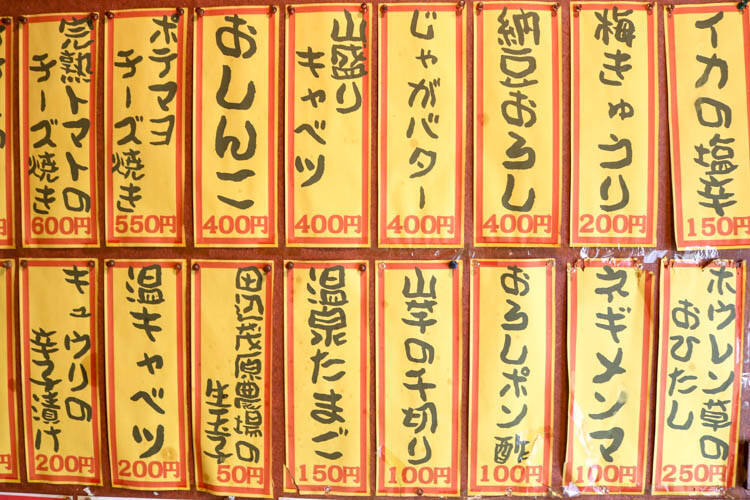 イカの塩辛
150円
梅きゅうり
200円
納豆おろし
400円
じゃがバター
400円
山盛り
キャベツ
400円
おしんこ
400円
ポテマヨ
チーズ焼き
550円
完熟トマトの
チーズ焼き
600円
ホウレン草の
おひたし
250円
ネギメンマ
100円
おろしポン酢
100円
山芋の千切り
100円
温泉たまご
150円
田辺茂原農場の
生玉子
50円
温キャベツ
200円
キュウリの
辛子漬け
200円